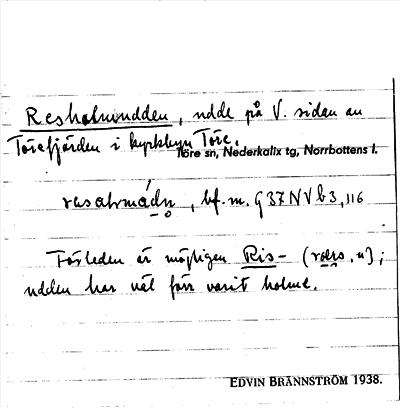 Resholmudden, udde på V. sidan av
Törefjärden i kyrkbyn Töre.
Töre sn, Nederkalix tg, Norrbottens l.
, bf. m. G 37 NV b3, 116
Förleden är möjligen Ris- ( , n);
udden har väl förr varit holme.
EDVIN BRÄNNSTRÖM 1938.